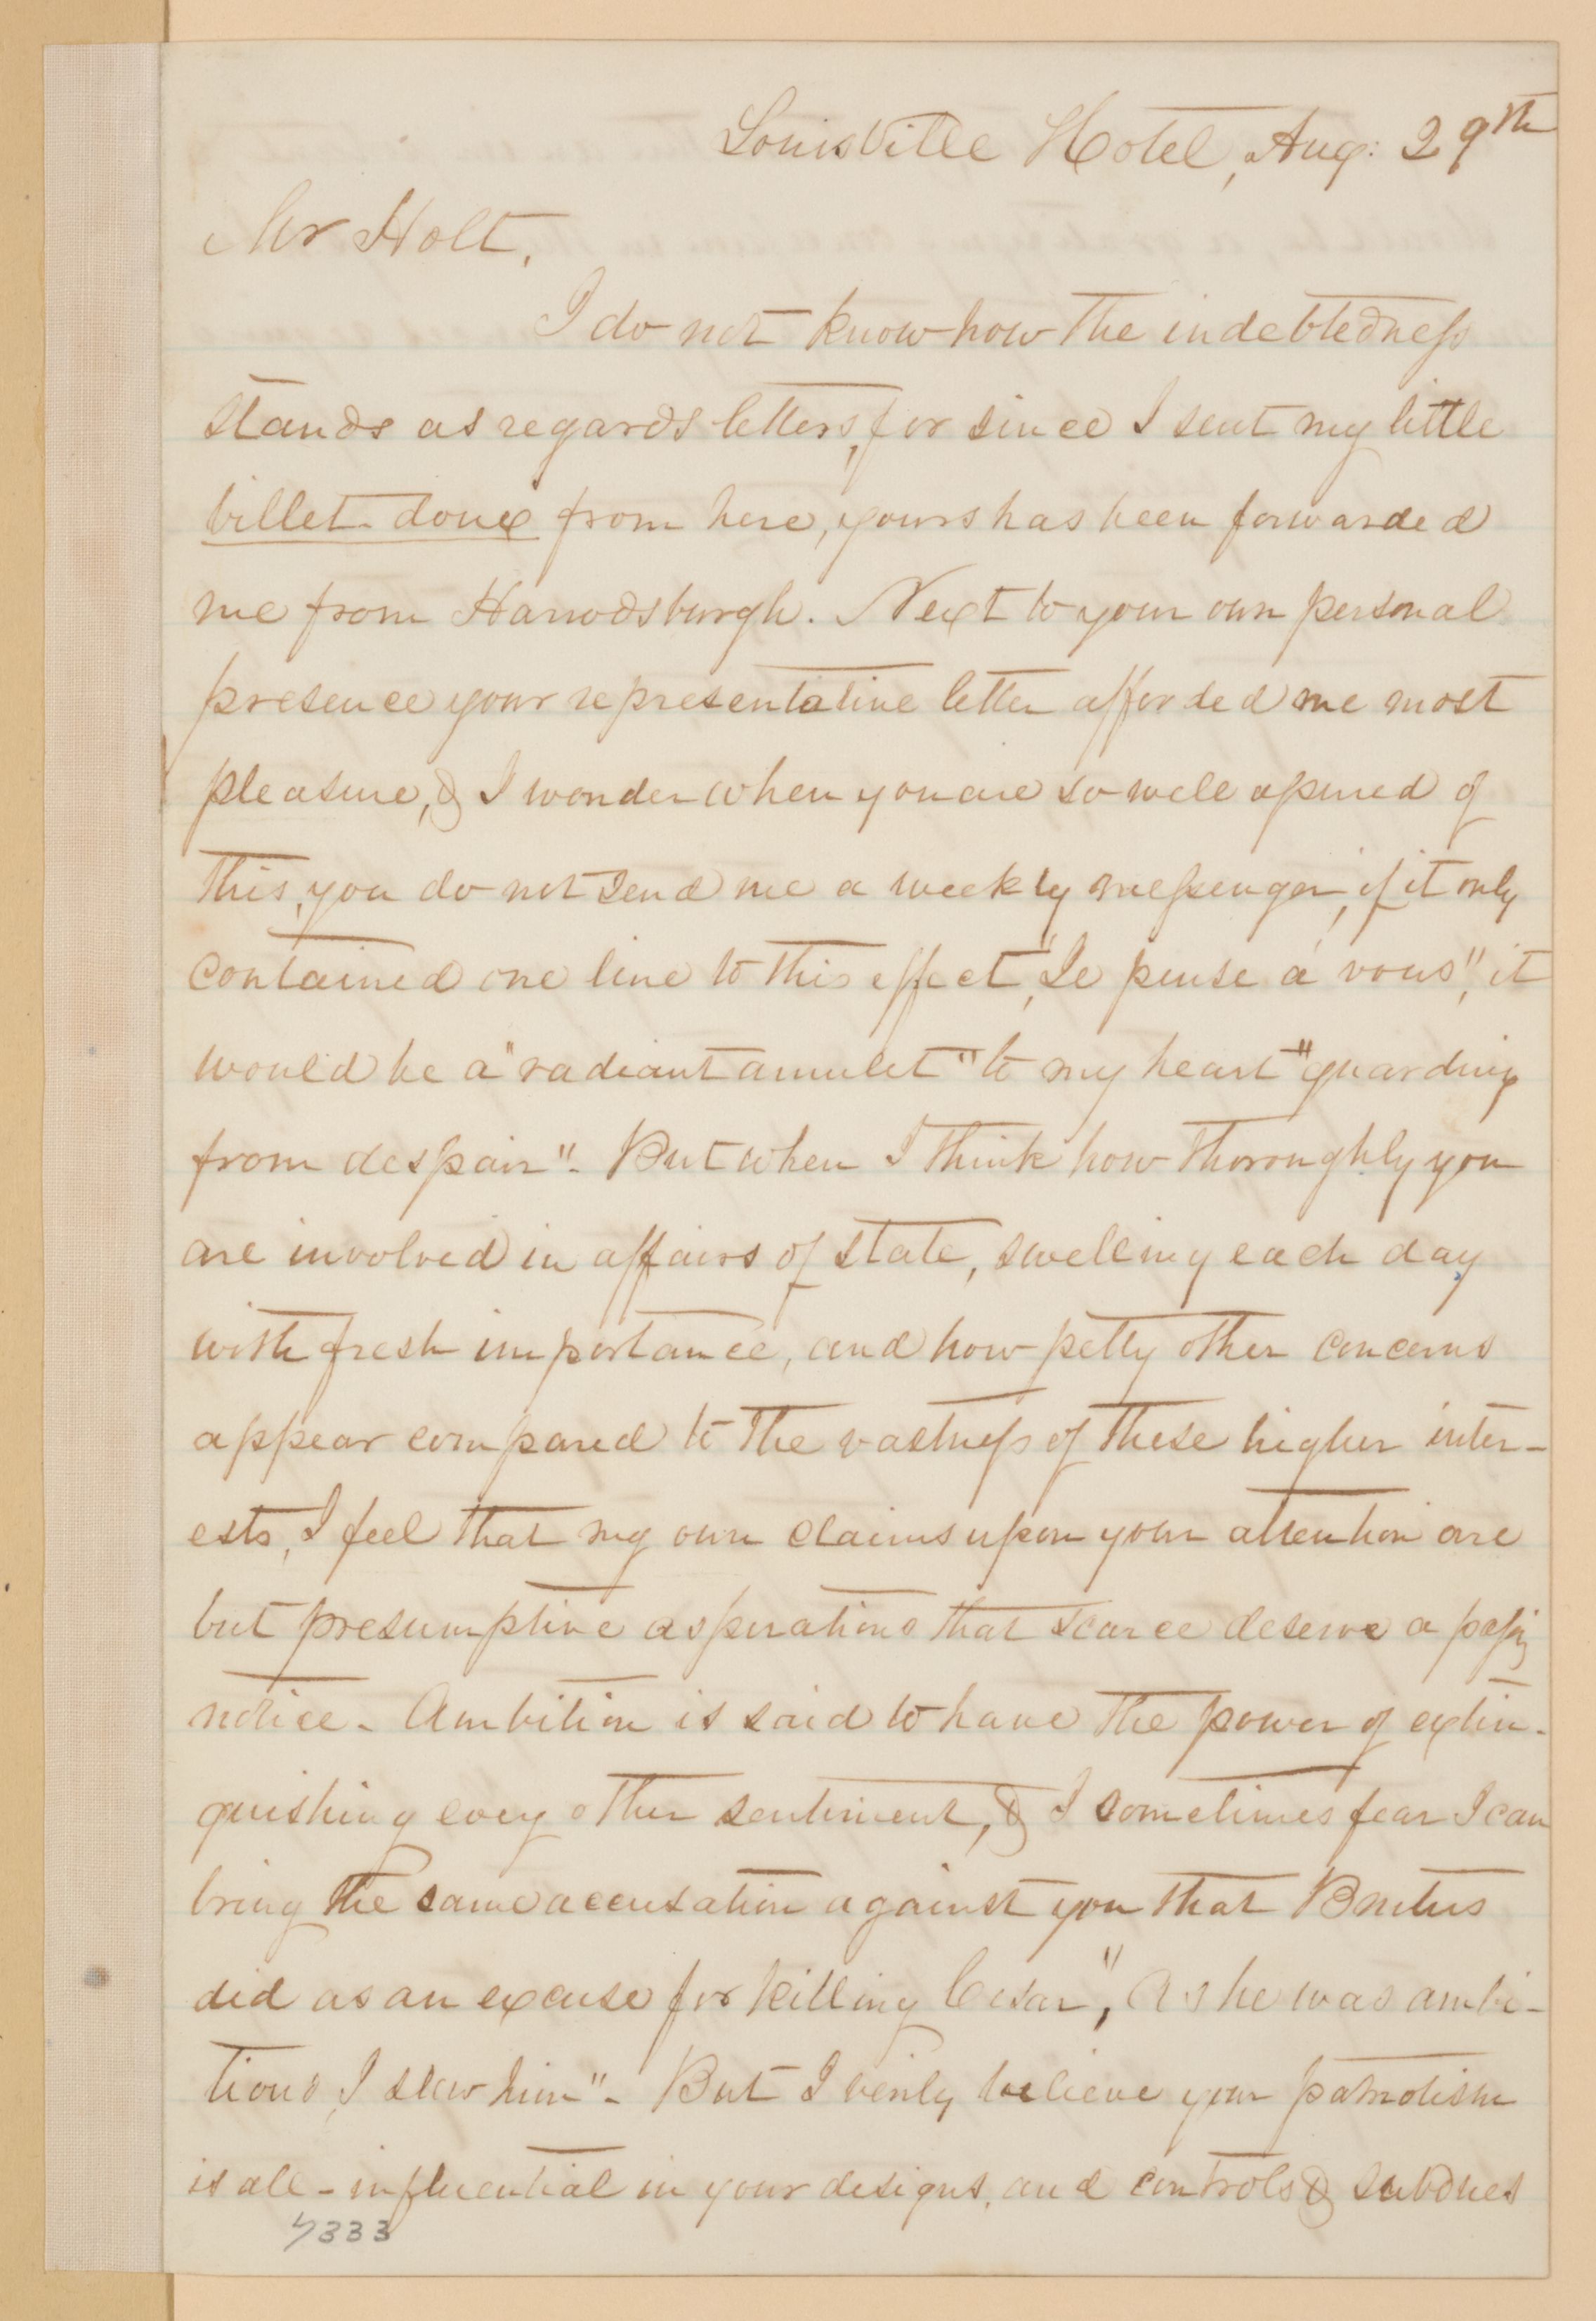 Louisville Hotel, Aug: 29th
Mr Holt,
I do not know how the indebtedness
stands as regards letters, for since I sent my little
billet-doux from here, yours has been forwarded
me from Harrodsburgh. Next to your own personal
presence your representative letter afforded me most
pleasure, & I wonder when you are so well apized of
this, you do not send me a weekly messenger, if it only
contained one line to this effect, "Je pense á vous", it
would be a "radiant amulet" to my heart "guarding
from despair". But when I think how thoroughly you
are involved in affairs of state, swelling each day
with fresh importance, and how petty other concerns
appear compared to the vastness of these higher inter-
ests, I feel that my own claims upon your attention are
but presumptive aspirations that scarce deserve a passing
notice. Ambition is said to have the power of extin-
guishing every other sentiment, & I sometimes fear I can
bring the same accusation against you that Brutus
did as an excuse for killing Cesar, "As he was ambi-
tious, I slew him". But I verily believe your patriotism
is all-influential in your designs, and controls & subdues
7333